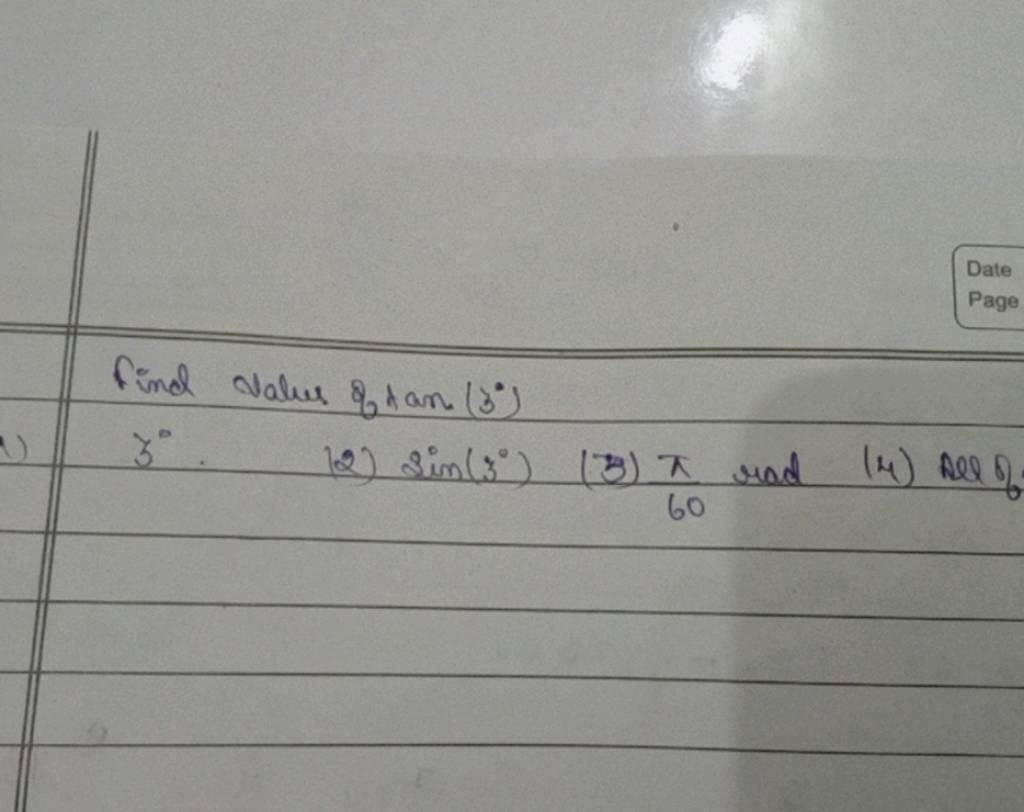 Date
Page
find value of tan (3°)
1) 3°. (2) Sin(3°) (3) π/60 rad (4) All of